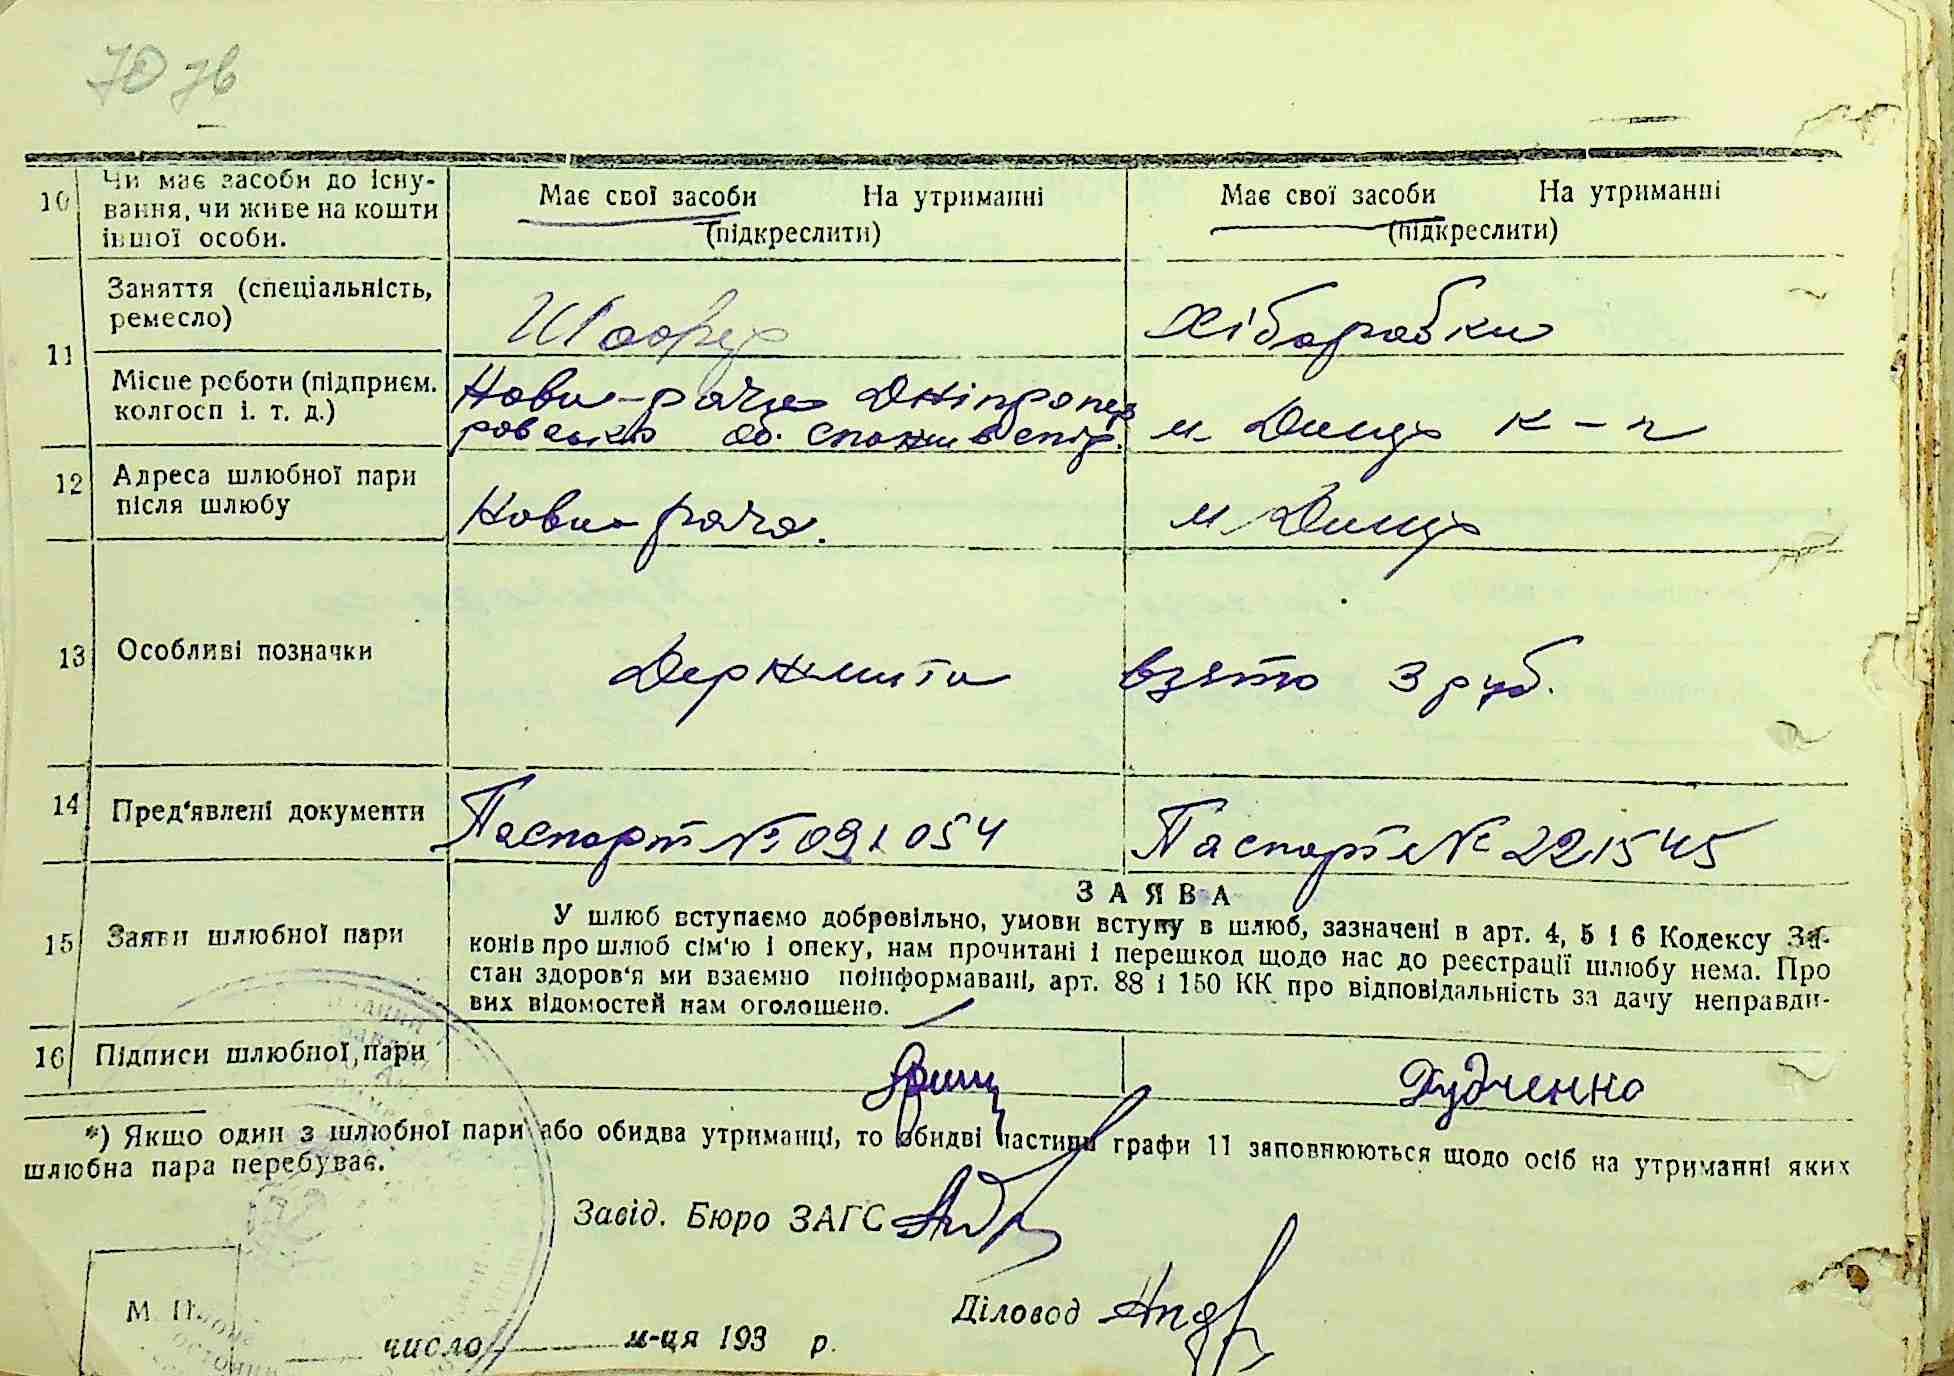 70 зв
10 Чи має засоби до існу-
вання, чи живе на кошти
іншої особи.
Має свої засоби На утриманні
(підкреслити)
Має свої засоби На утриманні
(підкреслити)
11 Заняття (спеціальність,
ремесло)
Шофер
Хіборобки
Місце роботи (підприєм.
колгосп і. т. д.)
Нови-рача Дніпропет
ровсько об. споживспір.
м к-п
12 Адреса шлюбної пари
після шлюбу
Нови-рача.
м
13 Особливі позначки
Держмита взято 3 руб.
14 Пред'явлені документи
Паспорт № 091054
Паспорт № 221545
15 Заяви шлюбної пари
ЗАЯВА
У шлюб вступаємо добровільно, умови вступу в шлюб, зазначені в арт. 4, 5 і 6 Кодексу За-
конів про шлюб сім'ю і опеку, нам прочитані і перешкод щодо нас до реєстрації шлюбу нема. Про
стан здоров'я ми взаємно поінформавані, арт. 88 і 150 КК про відповідальність за дачу неправди-
вих відомостей нам оголошено.
16 Підписи шлюбної пари
Дудченко
*) Якщо один з шлюбної пари або обидва утриманці, то обидві частини графи 11 заповнюються щодо осіб на утриманні яких
шлюбна пара перебуває.
Завід. Бюро ЗАГС
Діловод
М. П.
число м-ця 193 р.